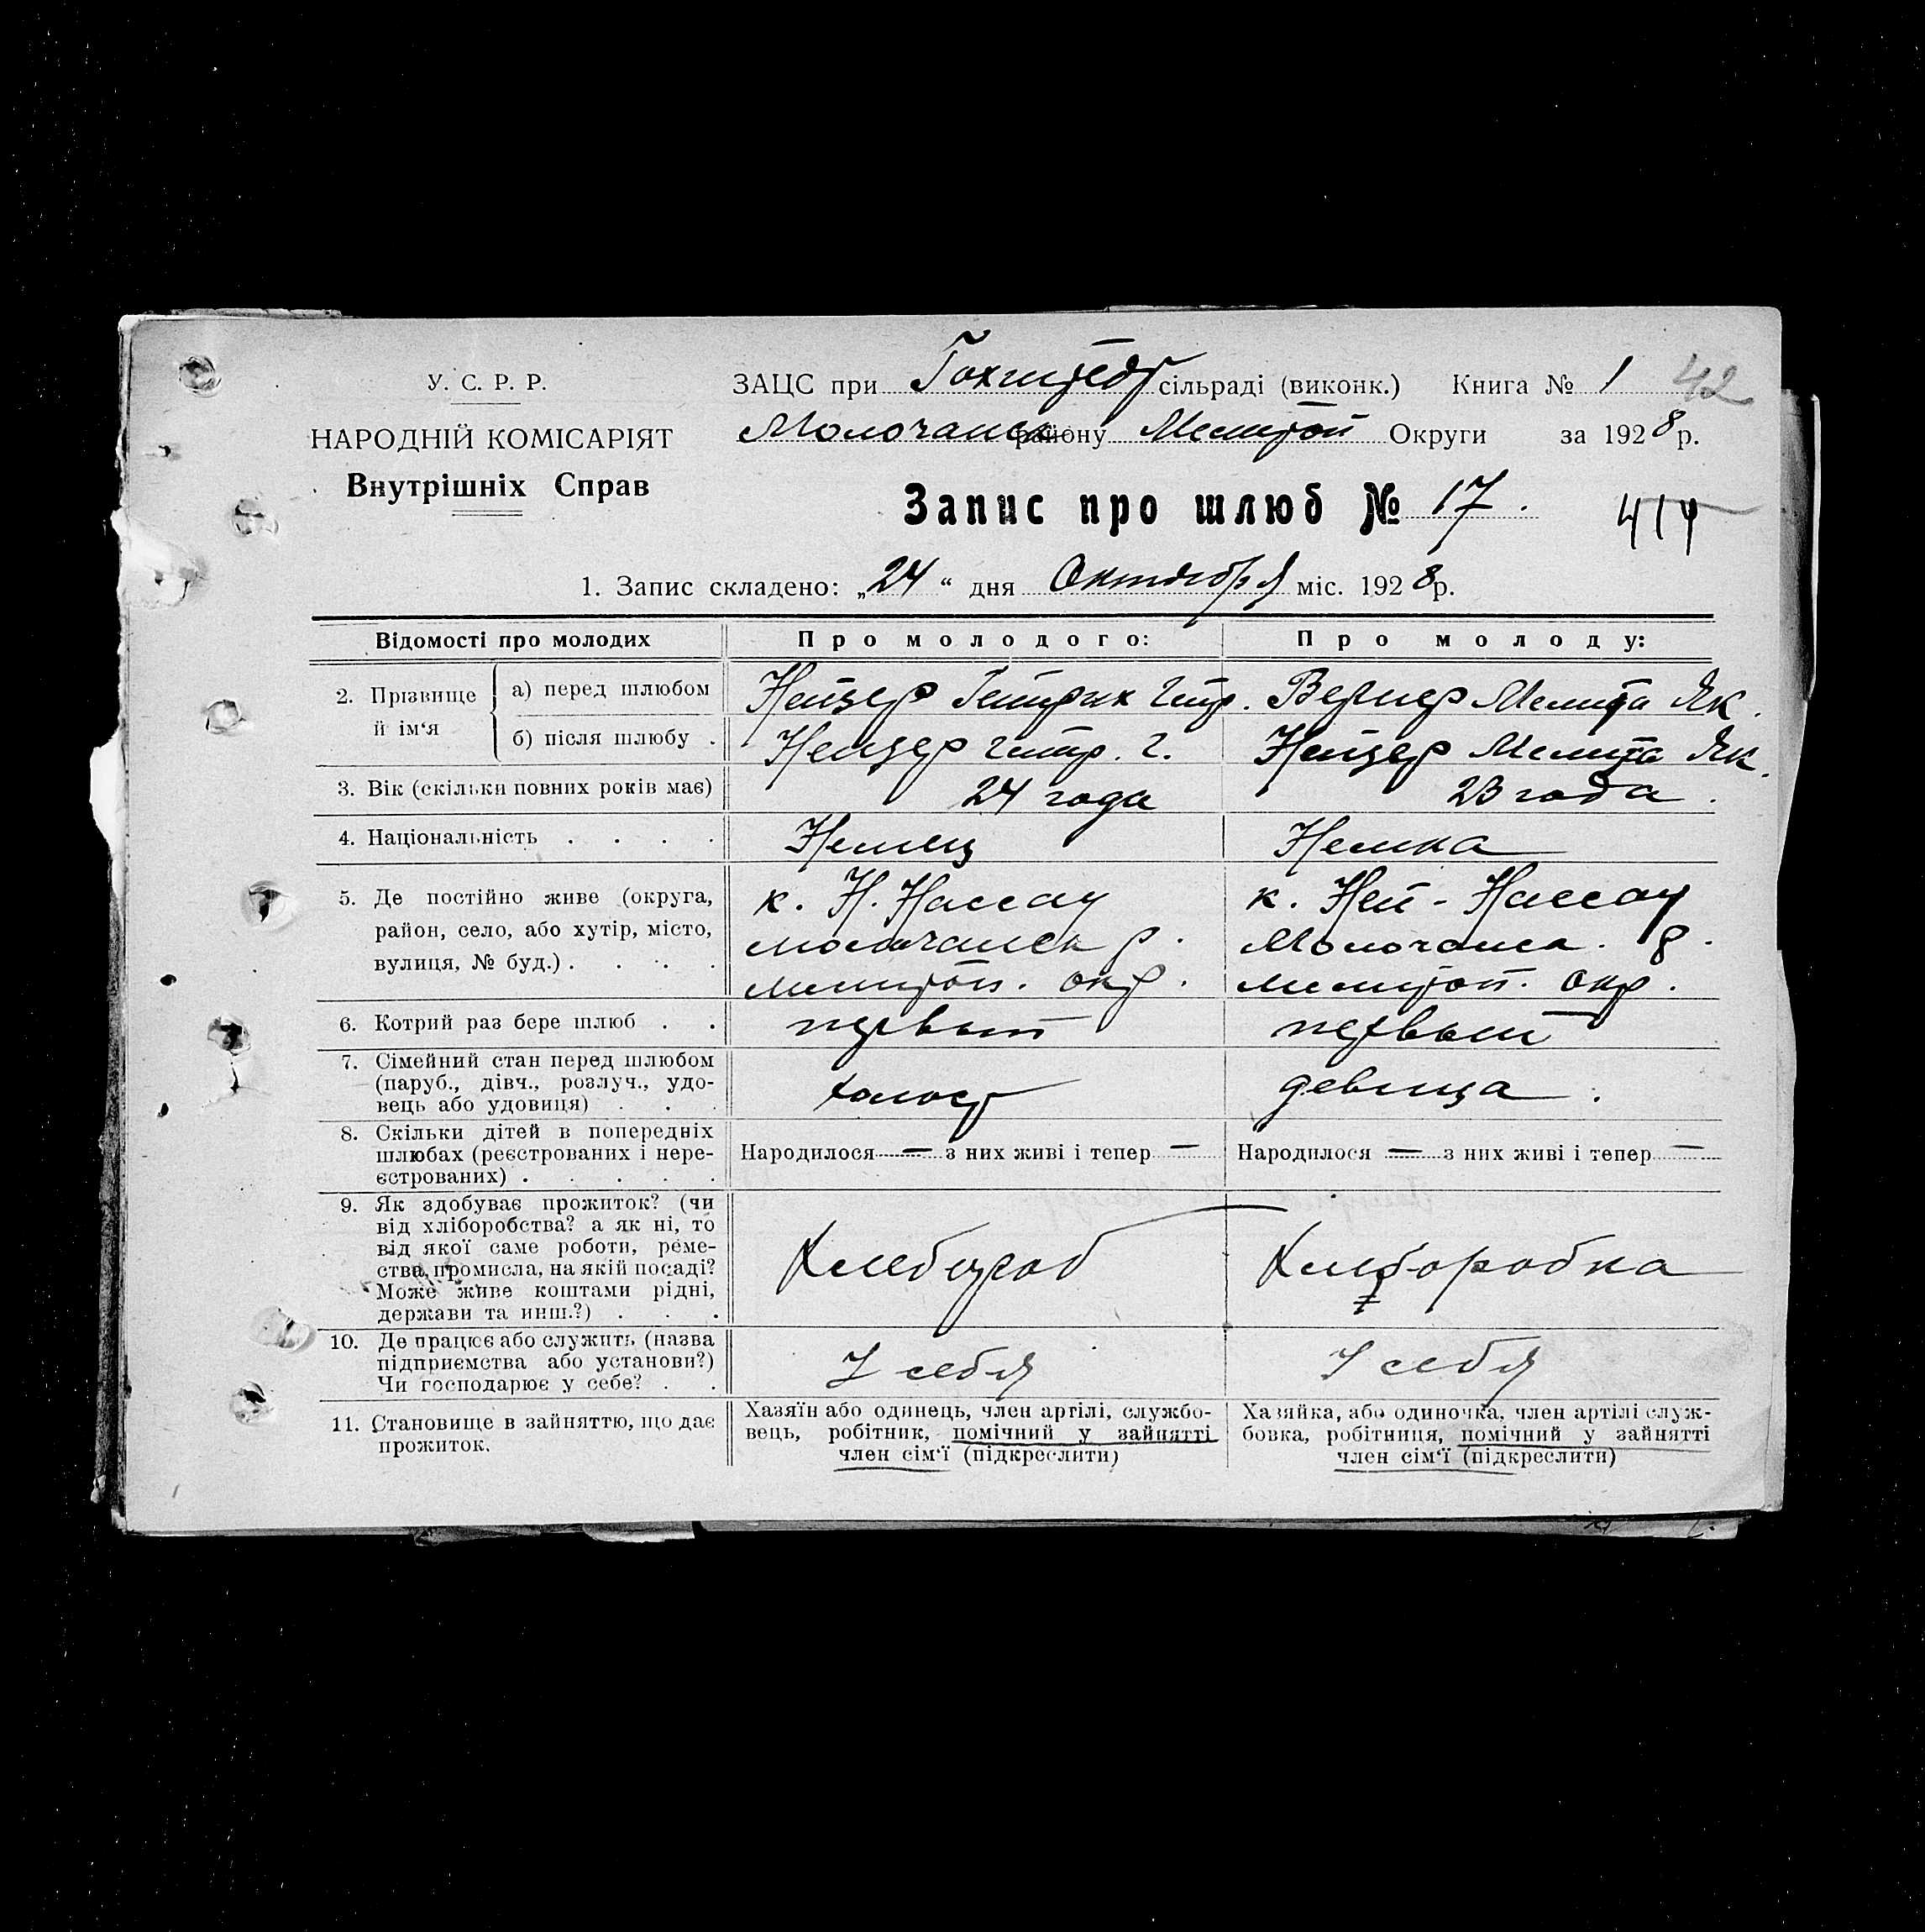 У. С. Р. Р.
НАРОДНІЙ КОМІСАРІЯТ
Внутрішніх Справ
ЗАЦС при Гохштедт сільраді (виконк.) Книга № 1 42
Молочанск району Мелитоп Округи за 1928 р.
Запис про шлюб № 17. 414
1. Запис складено: „24“ дня Октября міс. 1928 р.
Відомості про молодих
Про молодого:
Про молоду:
2. Прізвище й ім‘я
а) перед шлюбом
Нейзер Гейнрих Гейнр.
Вернер Мелита Як.
б) після шлюбу .
Нейзер Гейнр. Г.
Нейзер Мелита Як.
3. Вік (скільки повних років має)
24 года
23 года.
4. Національність . . . .
Немец
Немка
5. Де постійно живе (округа,
район, село, або хутір, місто,
вулиця, № буд.) . . . .
к. Н. Нассау
Молочанск р.
Мелитоп. окр.
к. Ней-Нассау
Молочанск. р.
Мелитоп. окр.
6. Котрий раз бере шлюб . .
первый
первый
7. Сімейний стан перед шлюбом
(паруб., дівч., розлуч., удо-
вець або удовиця) . . .
холост
девица.
8. Скільки дітей в попередніх
шлюбах (реєстрованих і нере-
єстрованих) . . . . .
Народилося — з них живі і тепер —
Народилося — з них живі і тепер —
9. Як здобуває прожиток? (чи
від хліборобства? а як ні, то
від якої саме роботи, реме-
ства, промисла, на якій посаді?
Може живе коштами рідні,
держави та инш.?) . . .
Хлебороб
Хлеборобка
10. Де працює або служить (назва
підприємства або установи?)
Чи господарює у себе? . .
У себя
У себя
11. Становище в зайняттю, що дає
прожиток.
Хазяїн або одинець, член артілі, службо-
вець, робітник, помічний у зайнятті
член сім‘ї (підкреслити)
Хазяйка, або одиночка, член артілі служ-
бовка, робітниця, помічний у зайнятті
член сім‘ї (підкреслити)